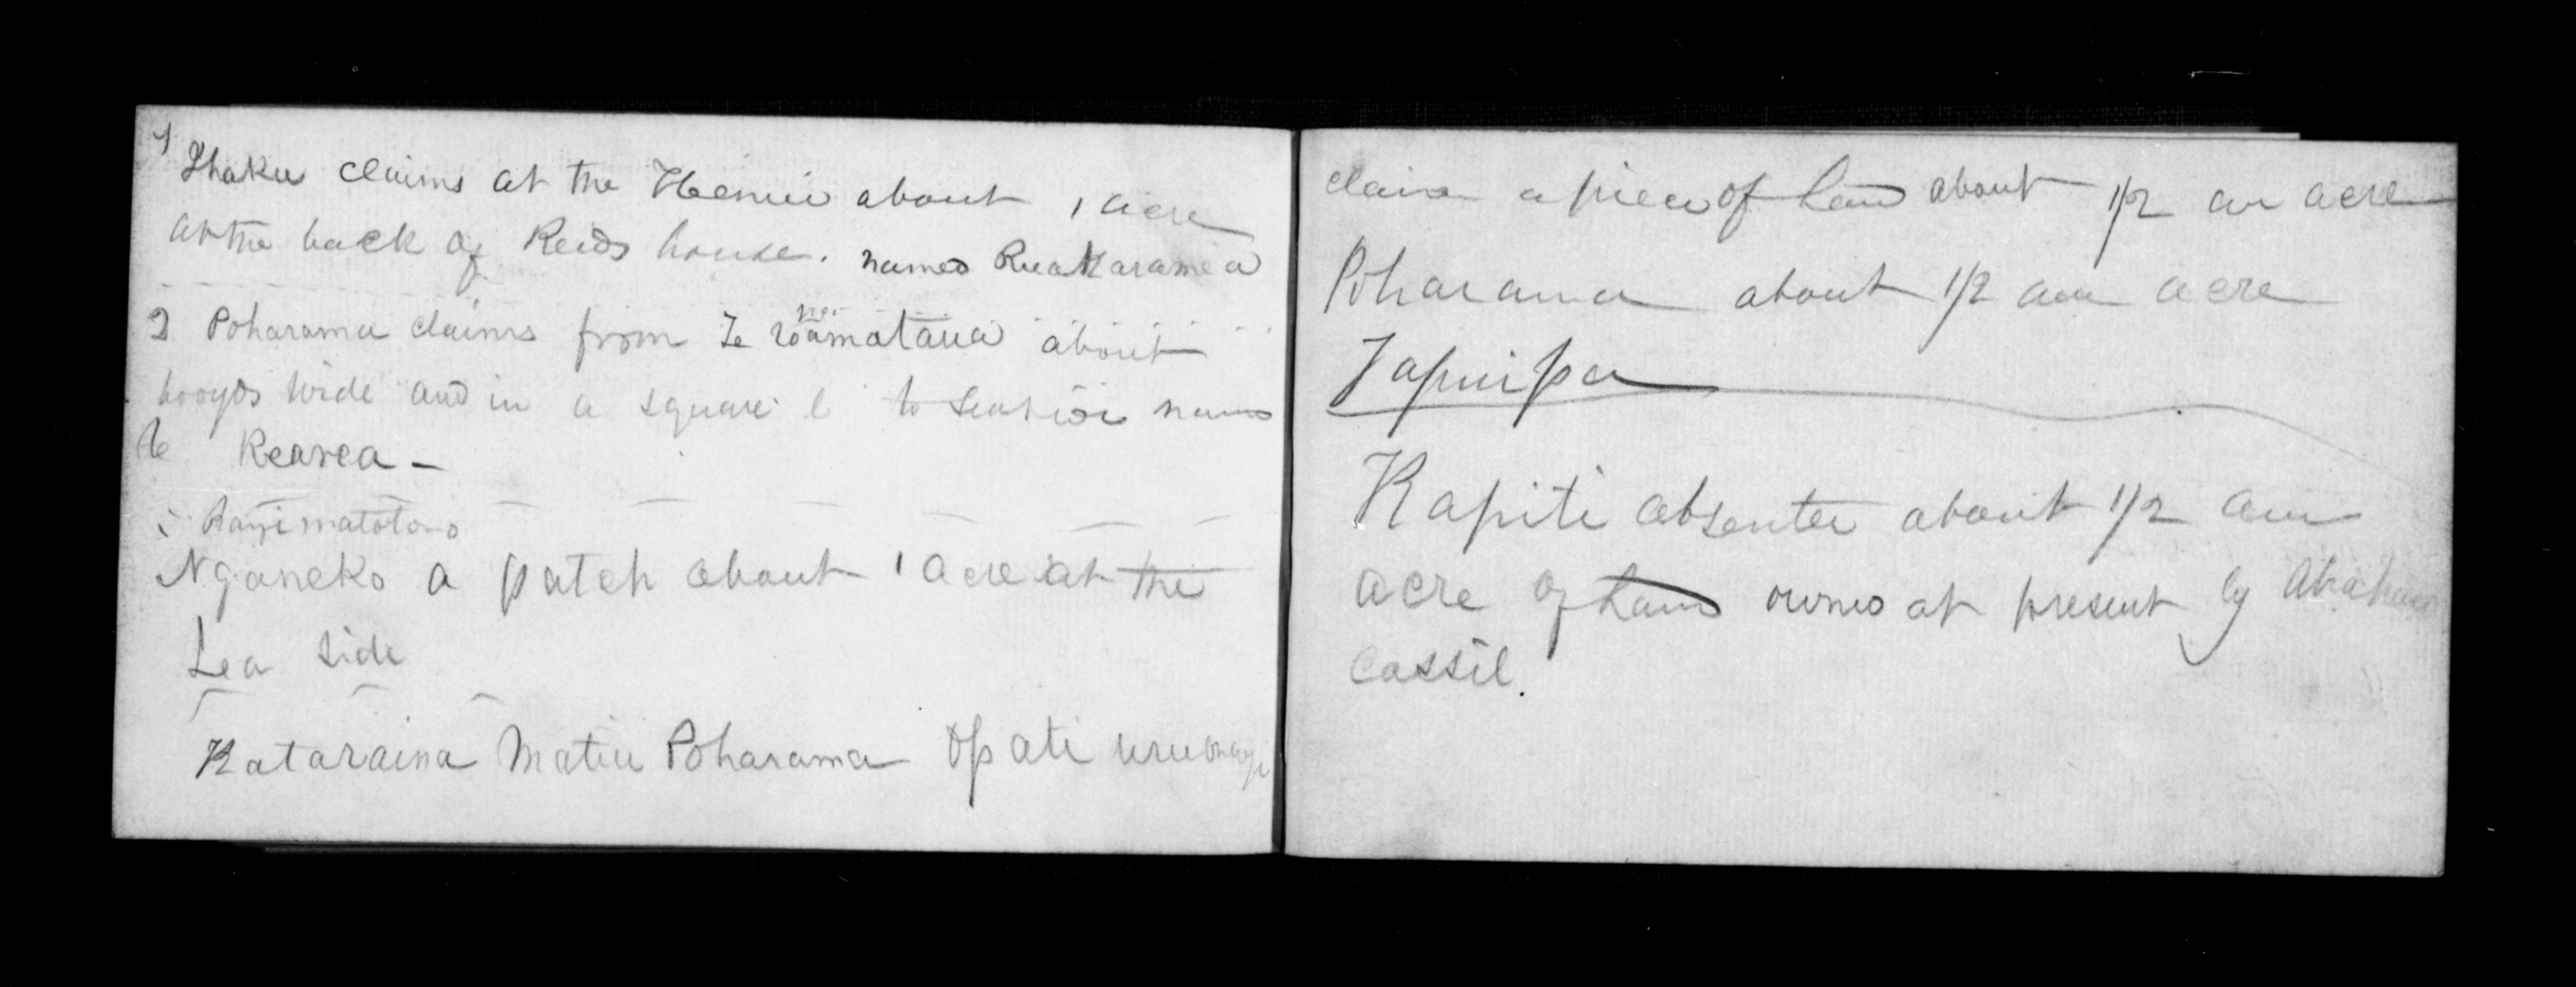 1 Ihaku claims at the Henui about 1 acre
at the back of Reids house. named Ruakaramea
2 Poharama claims from Te about
wide and in a square to name
te Rearea -
Nganeko a patch about 1 acre at the
Sea side
Kataraina Matiu Poharama
claim a piece of land about 1/2 an acre
Poharama about 1/2 an acre
Tapuipa
Kapiti absentee about 1/2 an
acre of land owned at present by Abraham
Cassil.